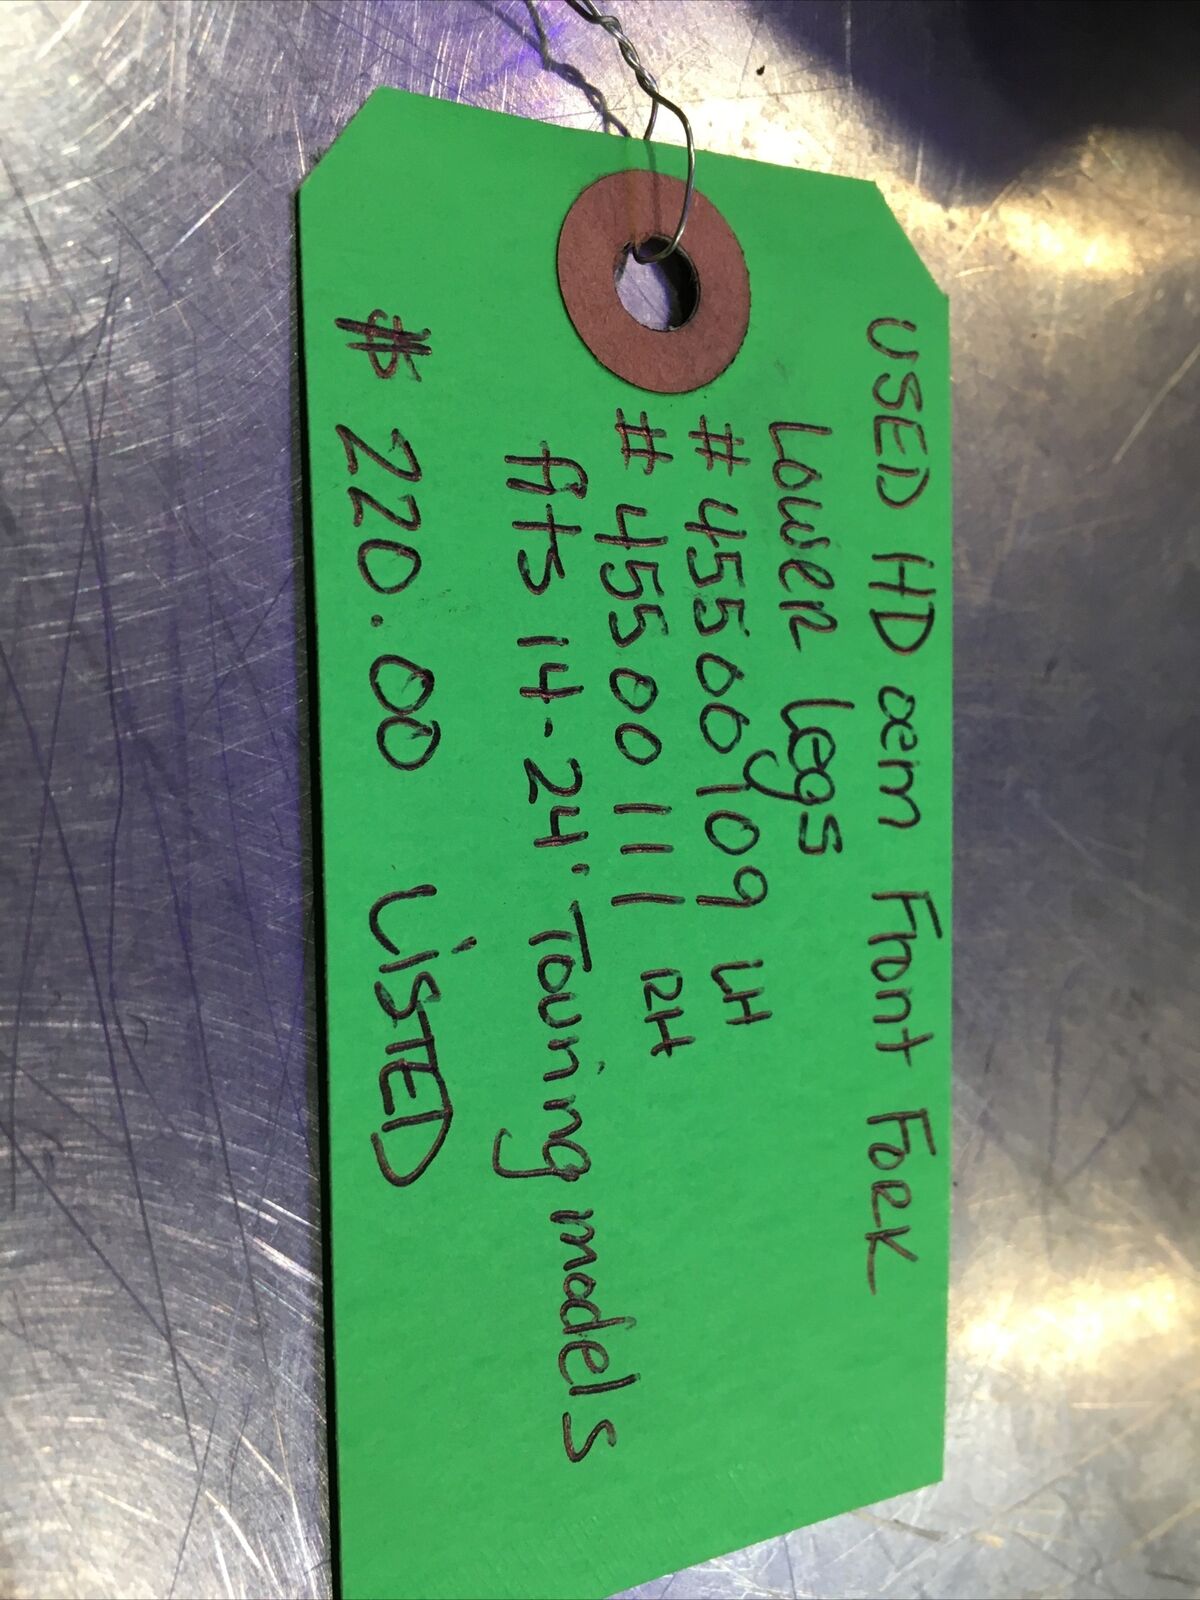 USED HD oem Front Fork
Lower Legs
# 45500109 LH
# 45500111 RH
fits 14-24' Touring models
$ 220.00 LISTED